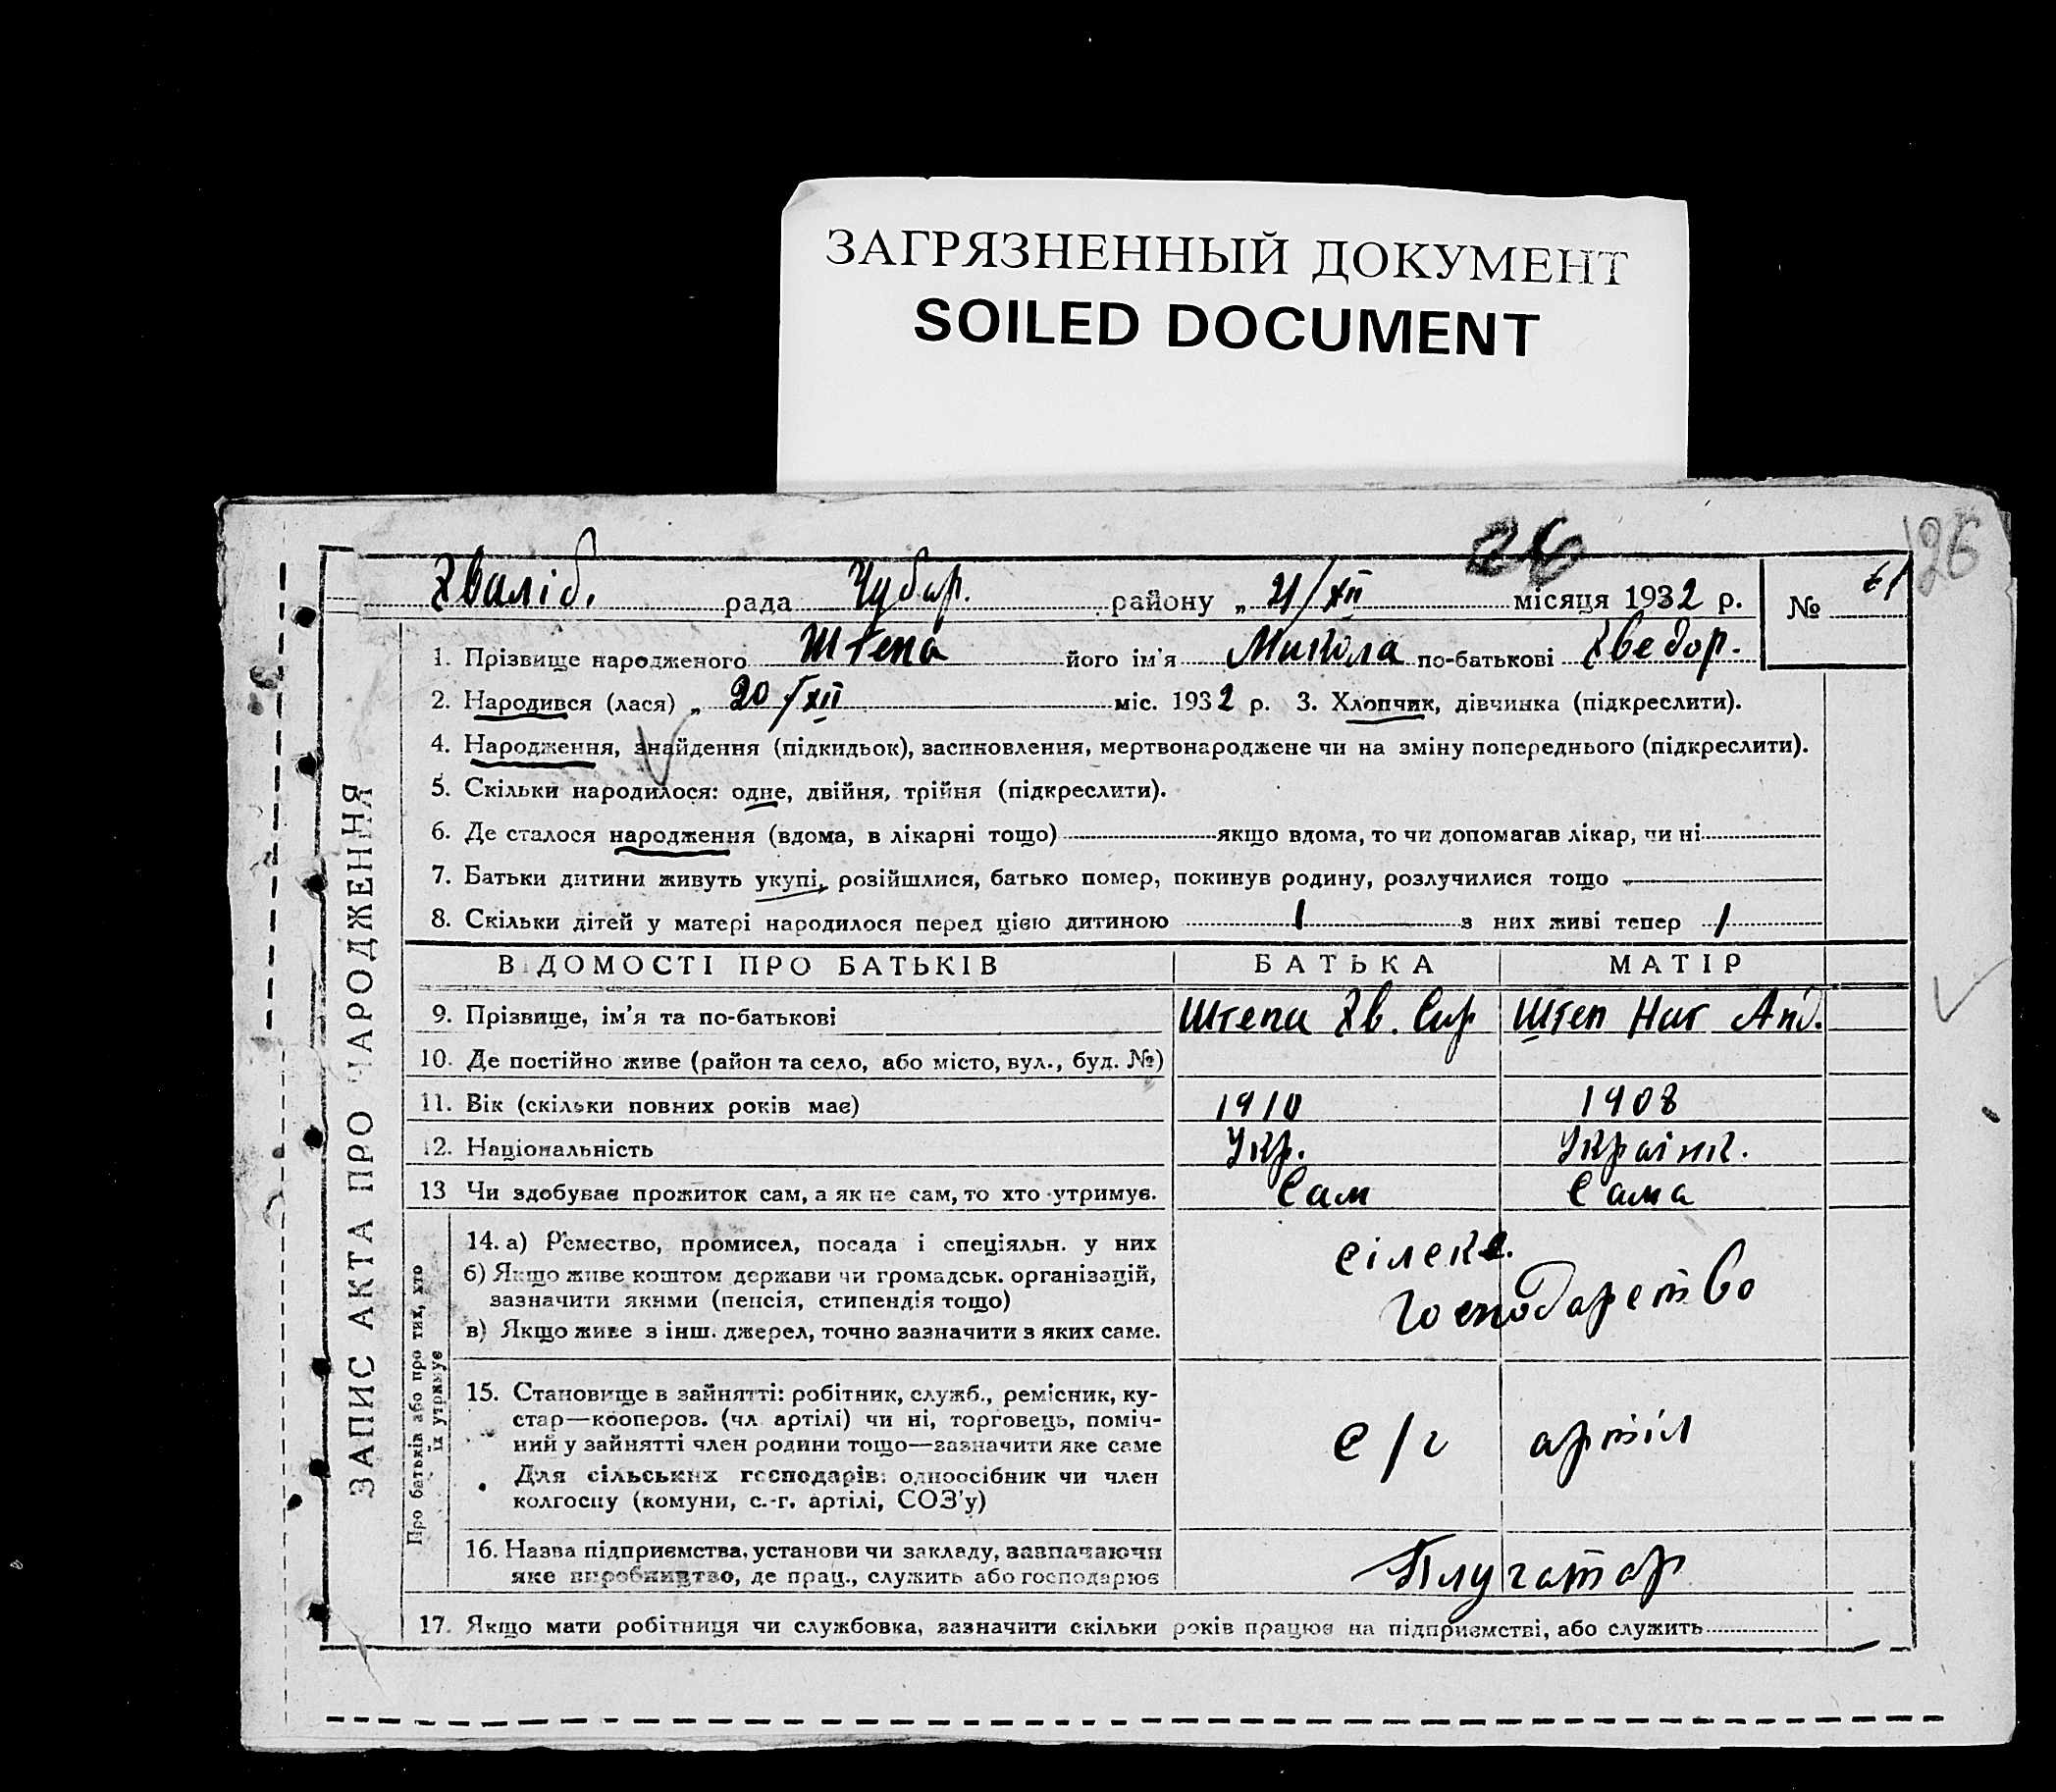 ЗАГРЯЗНЕННЫЙ ДОКУМЕНТ
SOILED DOCUMENT
26
26
Хваліб. рада Чубар. району „ 21/XII місяця 1932 р. №
1. Прізвище народженого Штепа його ім'я Микола по-батькові Хведор.
2. Народився (лася) „ 20/XII міс. 1932 р. 3. Хлопчик, дівчинка (підкреслити).
4. Народження, знайдення (підкидьок), засиновлення, мертвонароджене чи на зміну попереднього (підкреслити).
5. Скільки народилося: одне, двійня, трійня (підкреслити).
6. Де сталося народження (вдома, в лікарні тощо) якщо вдома, то чи допомагав лікар, чи ні
7. Батьки дитини живуть укупі, розійшлися, батько помер, покинув родину, розлучилися тощо
8. Скільки дітей у матері народилося перед цією дитиною 1 з них живі тепер 1
ВІДОМОСТІ ПРО БАТЬКІВ БАТЬКА МАТІР
9. Прізвище, ім'я та по-батькові Штепа Хв. Сир Штеп Нат Анд.
10. Де постійно живе (район та село, або місто, вул., буд. №)
11. Вік (скільки повних років має) 1910 1908
12. Національність Укр. Українк.
13 Чи здобуває прожиток сам, а як не сам, то хто утримує. Сам Сама
14. а) Ремество, промисел, посада і спеціяльн. у них сілськ.
б) Якщо живе коштом держави чи громадськ. організацій, господарство
зазначити якими (пенсія, стипендія тощо)
в) Якщо живе з інш. джерел, точно зазначити з яких саме.
15. Становище в зайнятті: робітник, служб., ремісник, ку-
стар—кооперов. (чл. артілі) чи ні, торговець, поміч-
ний у зайнятті член родини тощо—зазначити яке саме с/г артіл
Для сільських господарів: одноосібник чи член
колгоспу (комуни, с.-г. артілі, СОЗ'у)
16. Назва підприємства, установи чи закладу, зазначаючи Плугатар
яке виробництво, де прац., служить або господарює
17. Якщо мати робітниця чи службовка, зазначити скільки років працює на підприємстві, або служить
ЗАПИС АКТА ПРО НАРОДЖЕННЯ
Про батьків або про тих, хто
їх утримує